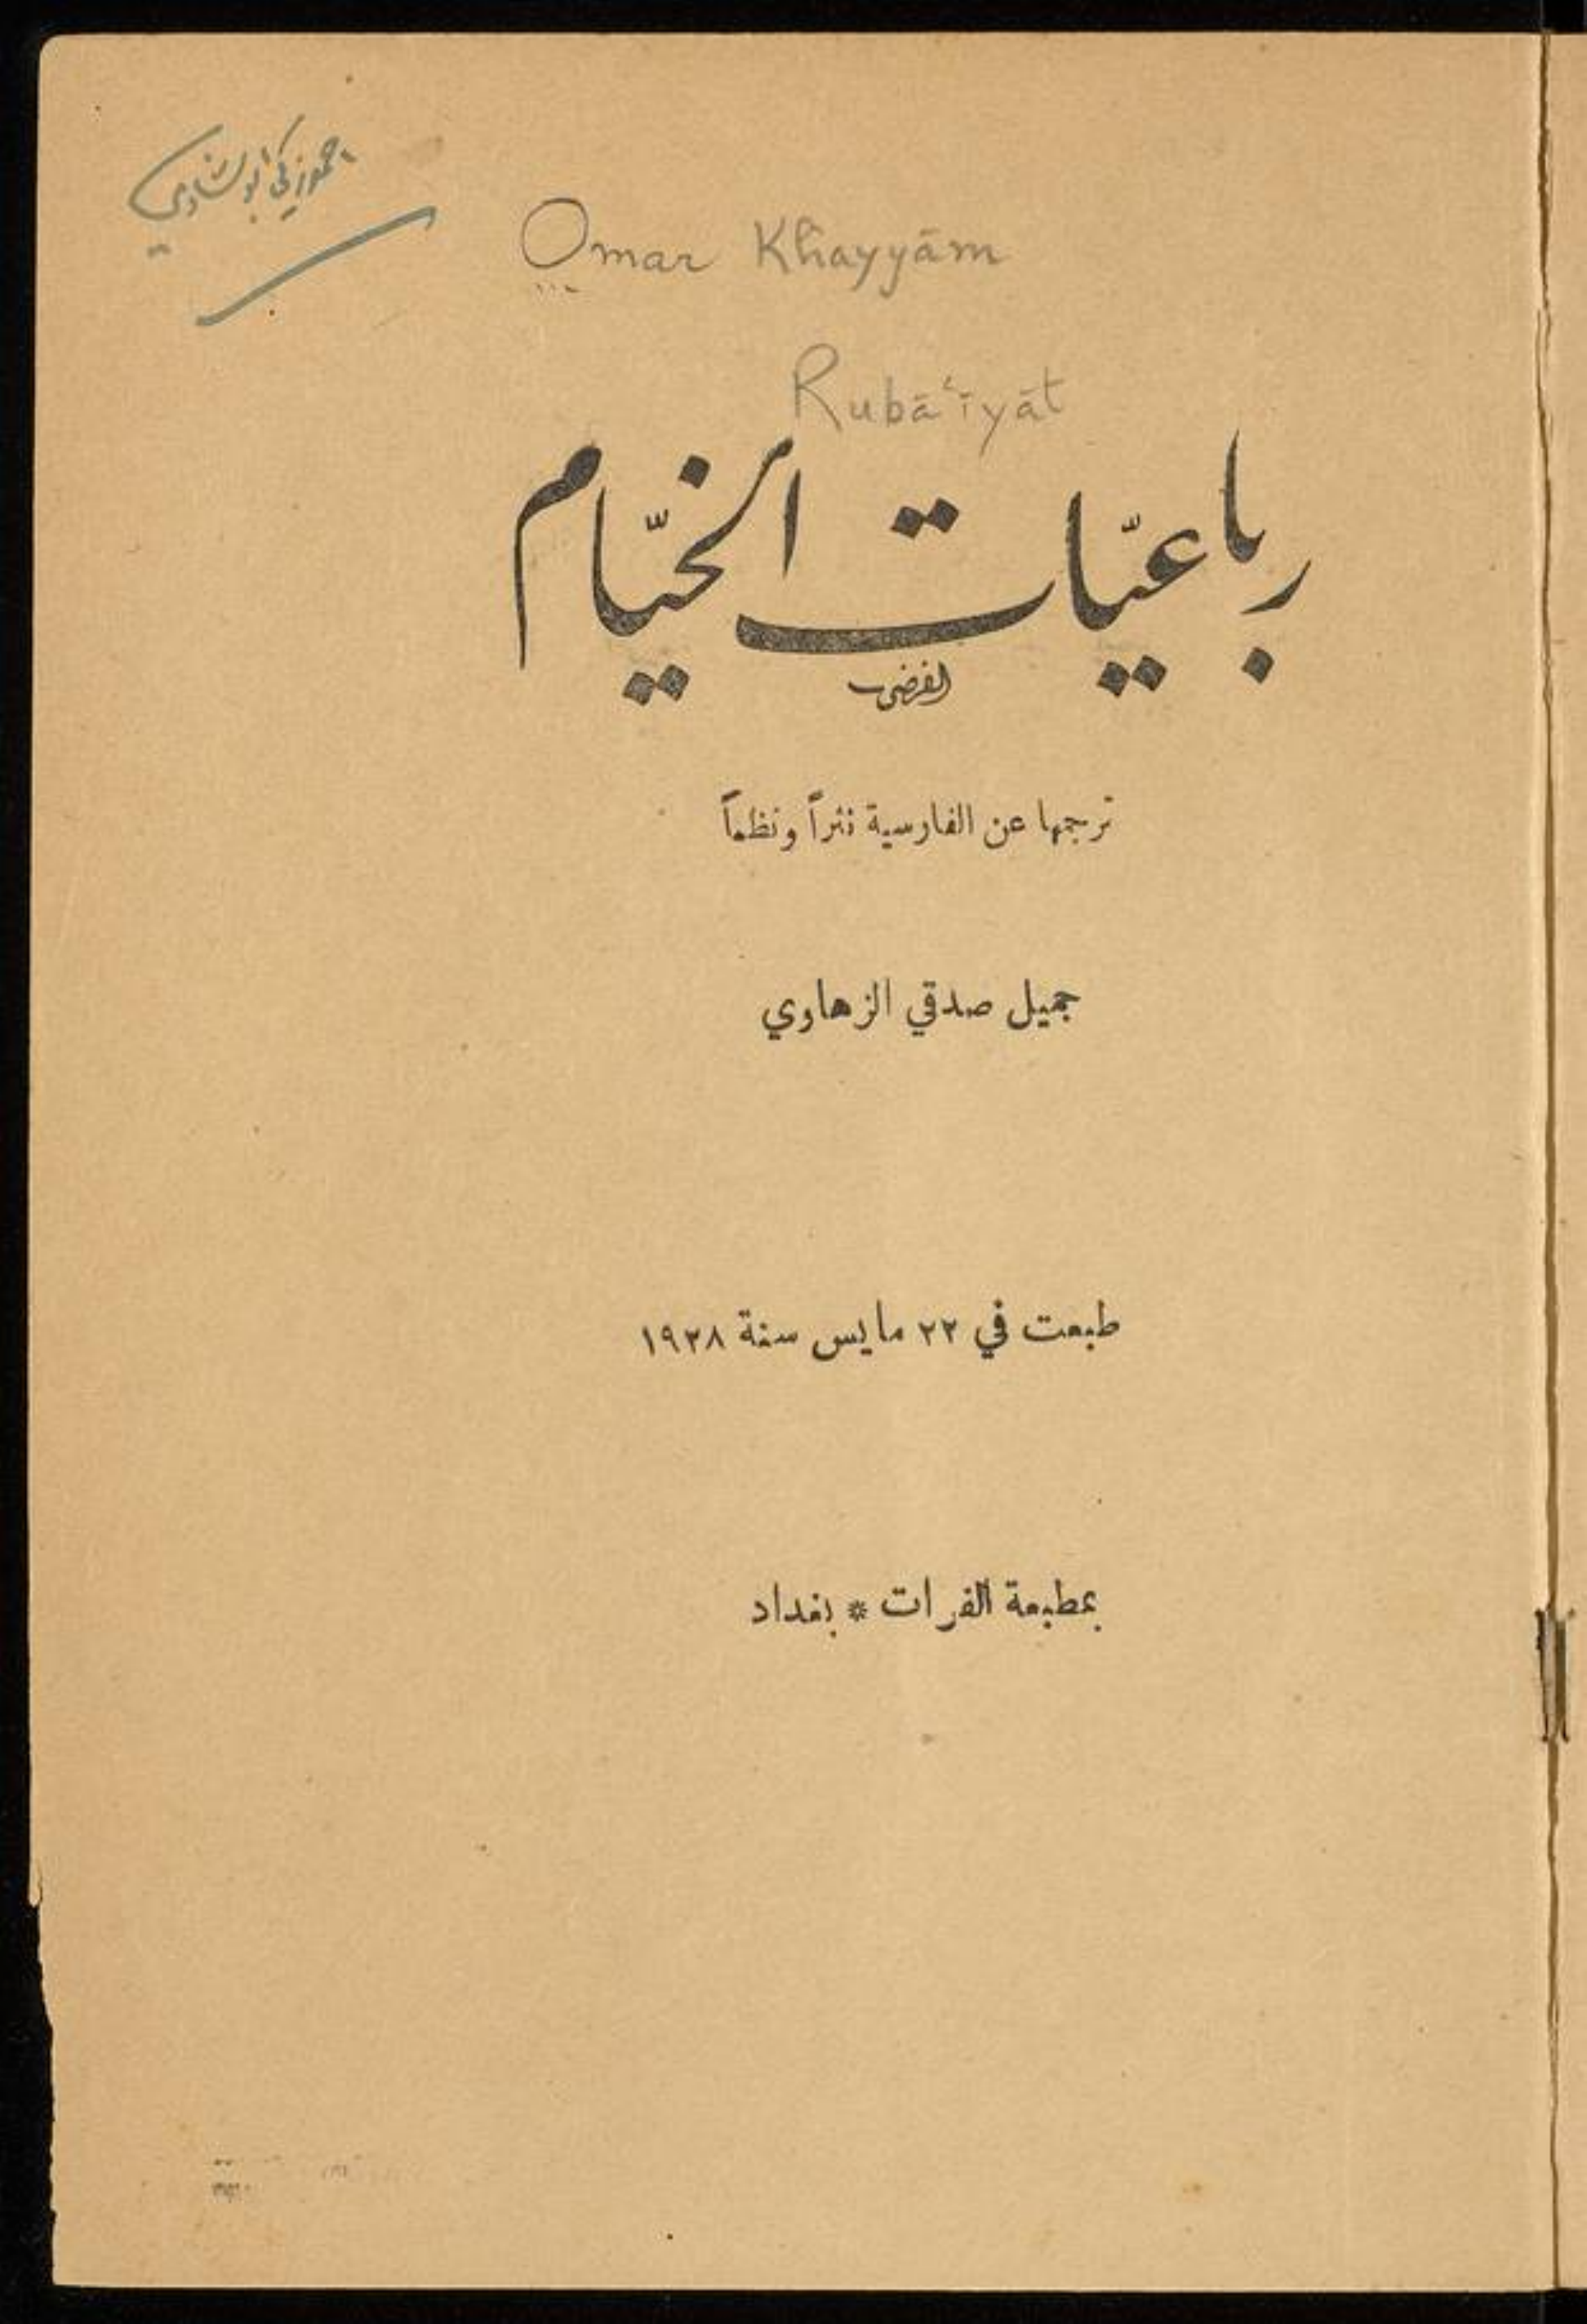 احمد زكي ابو شادي
Omar Khayyām
Rubā'īyāt
رباعيّات الخيّام
ترجمها عن الفارسية نثراً ونظماً
جميل صدقي الزهاوي
طبعت في ٢٢ مايس سنة ١٩٢٨
بمطبعة الفرات * بغداد